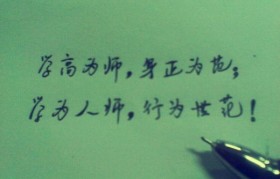 学高为师，身正为范；
学为人师，行为世范！